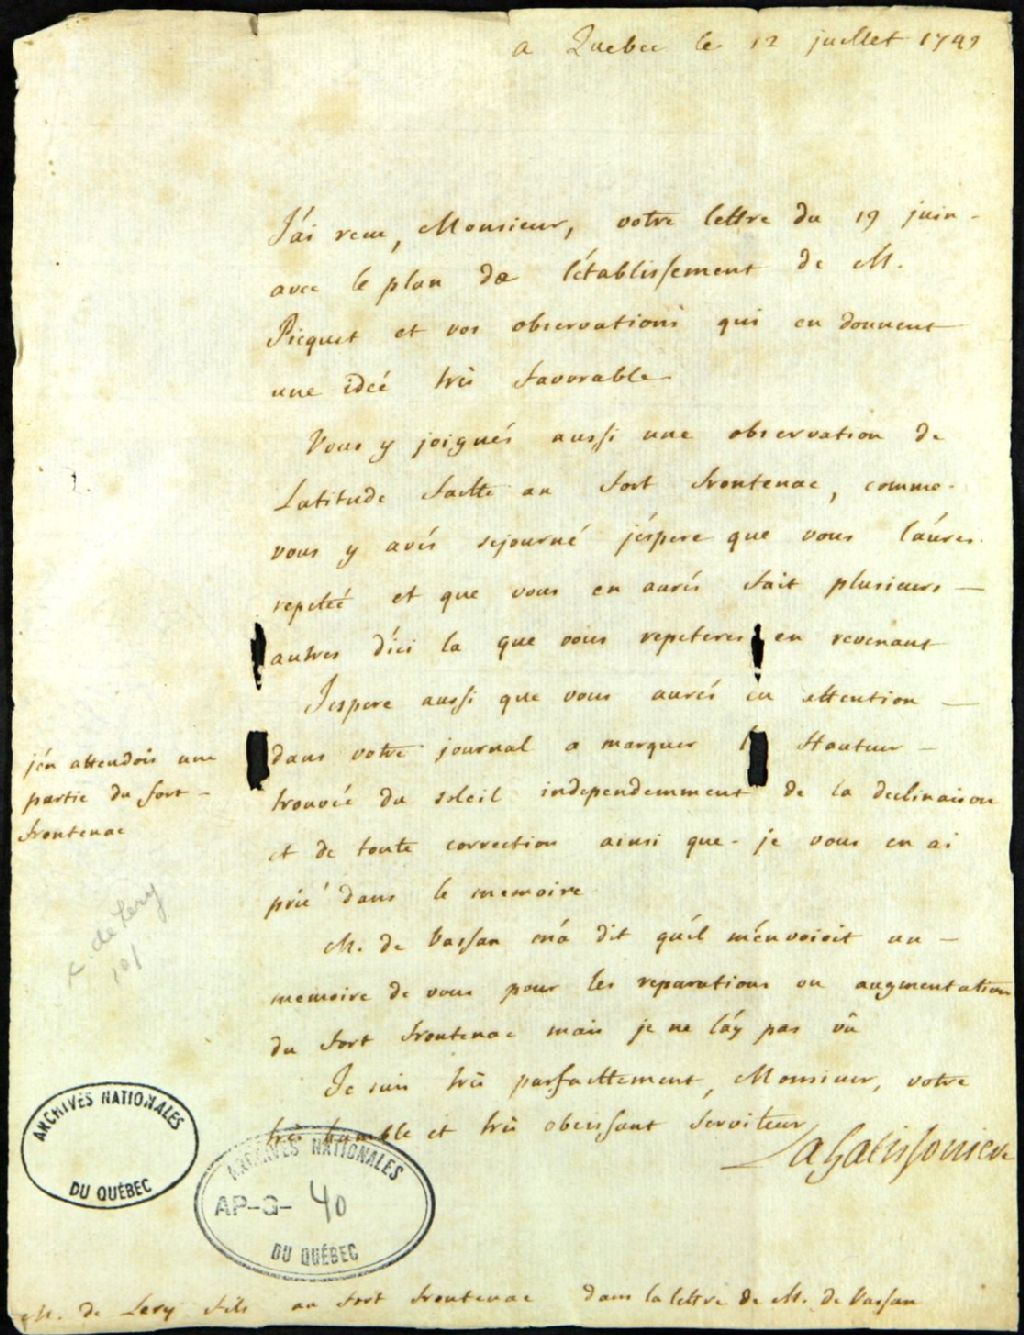 a Quebec le 12 juillet 1749
J'ai receu, Monsieur, votre lettre du 19 juin
avec le plan de l'établissement de M.
Picquet et vos observations qui en donnent
une ideé très favorable
Vous y joignés aussi une observation de
Latitude faitte au fort frontenac, comme
vous y avés sejourné j'éspere que vous l'aúrés
repeteé et que vous en aurés fait plusieurs
autres d'ici la que vous repeterés en revenant
J'espere aussi que vous aurés eu attention
dans votre journal a marquer Hauteur
trouveé du soleil independemment de la declinaison
et de toute correction ainsi que je vous en ai
prié dans le memoire
j'én attendois une
partie du fort
frontenac
M. de Vassan m'a dit qu'il m'énvoioit un
memoire de vous pour les reparations ou augmentations
du fort frontenac mais je ne l'ay pas vû
Je suis très parfaittement, Monsieur, votre
très humble et très obeissant Serviteur
LaGalissoniere
de Lery
101
ARCHIVES NATIONALES
DU QUÉBEC
ARCHIVES NATIONALES
AP-G-40
DU QUÉBEC
M. de Lery fils au fort frontenac dans la lettre de M. de Vassan